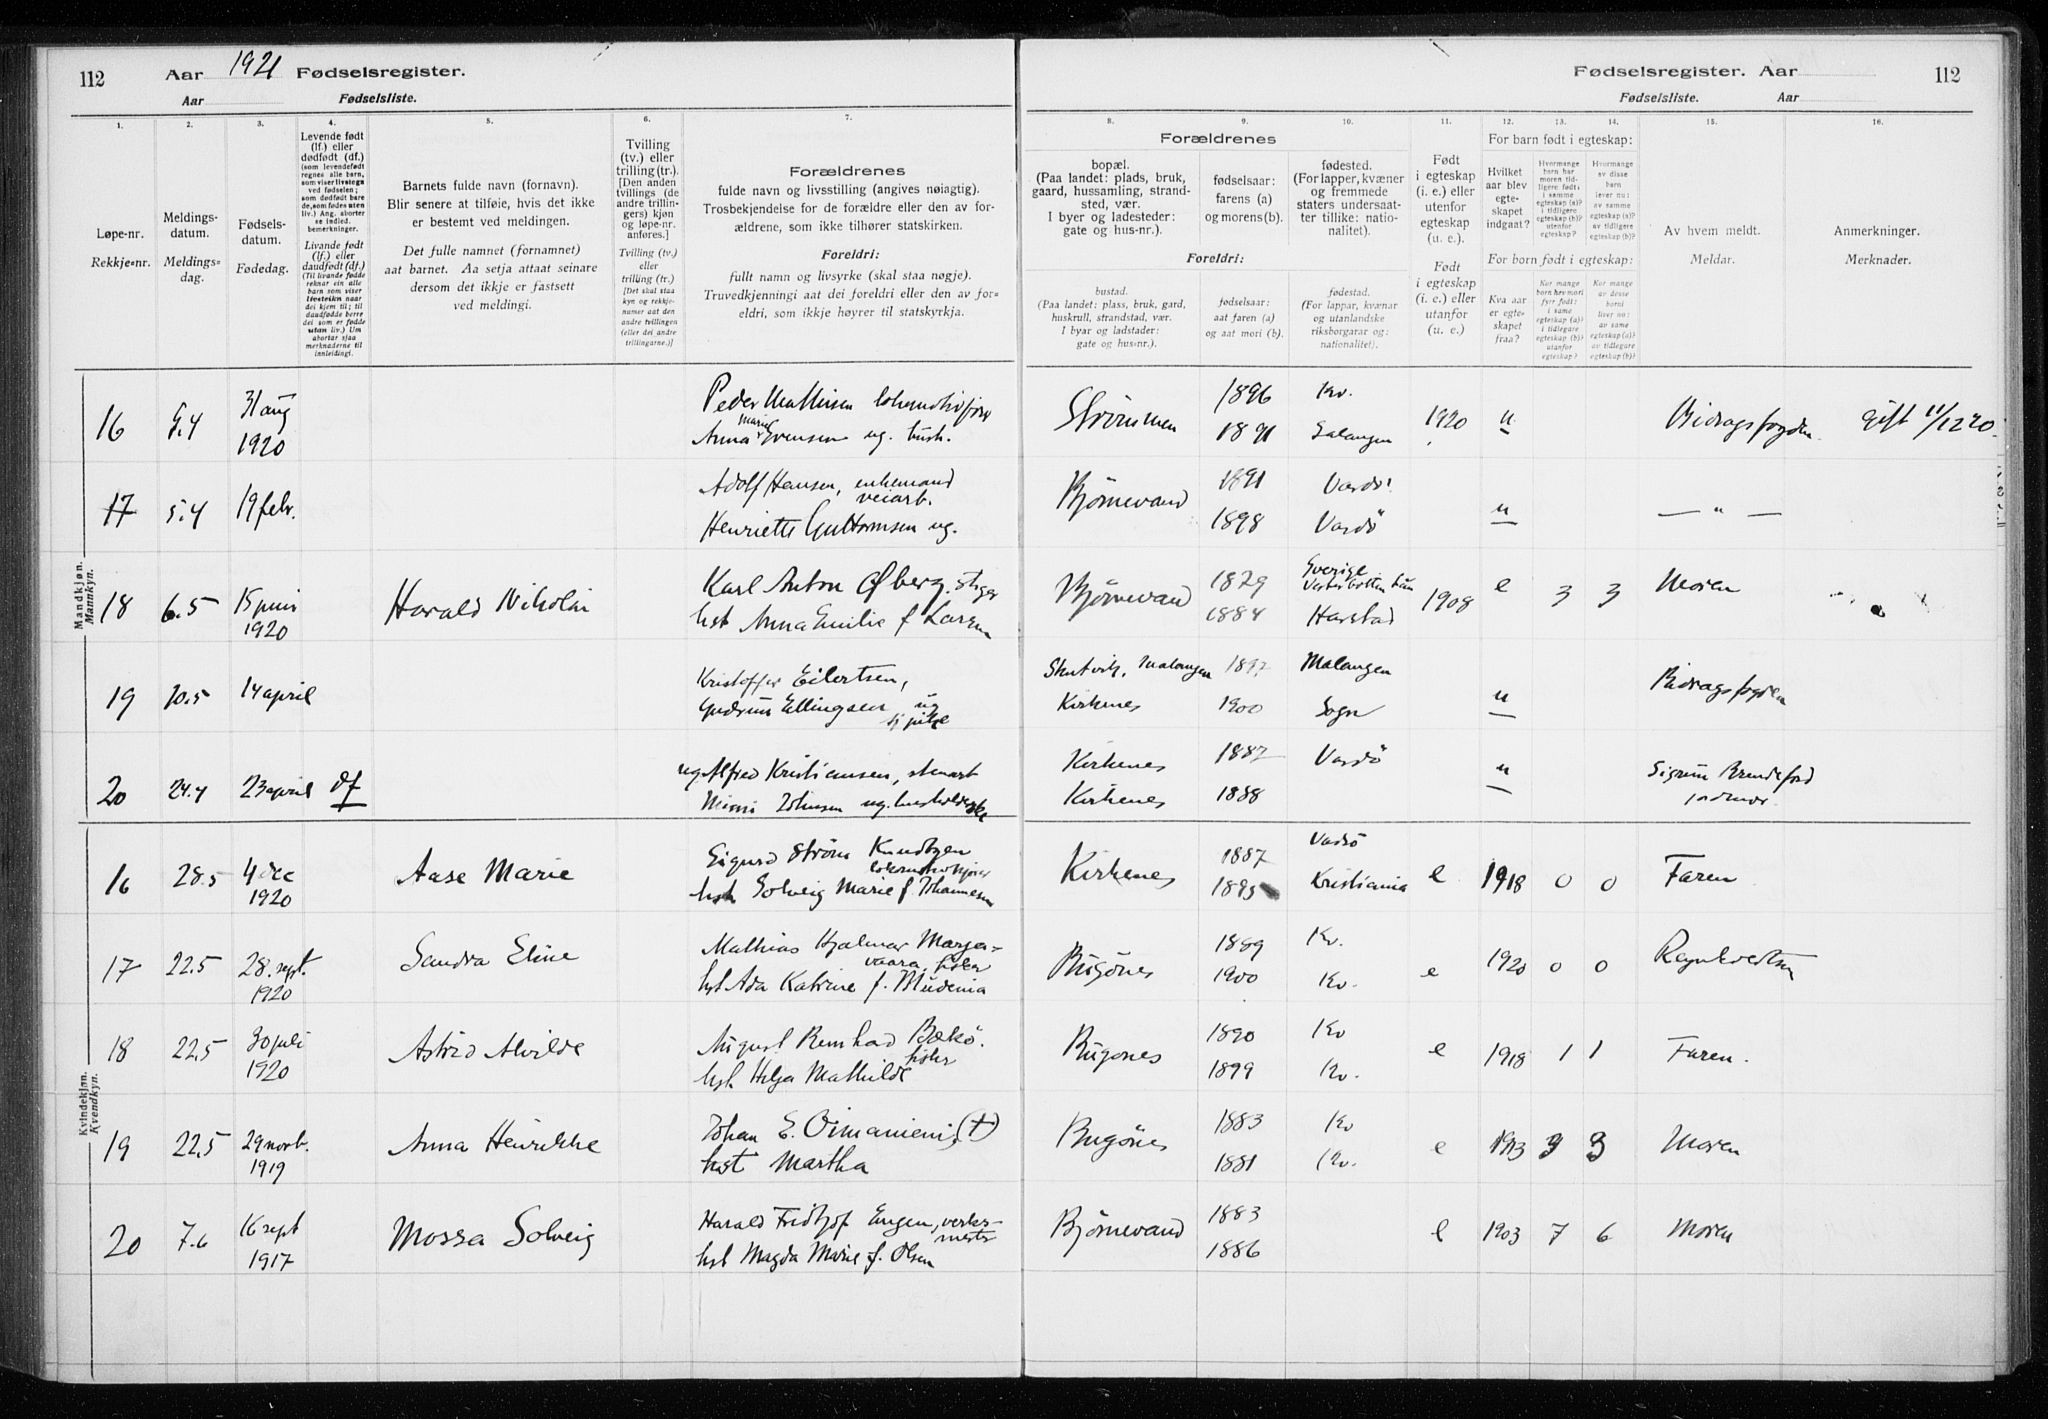 112 Aar 1921 Fødselsregister.
Aar Fødselsliste.
Fødselsregister. Aar 112
Fødselsliste. Aar
1. 2. 3. 4. 5. 6. 7. 8. 9. 10. 11. 12. 13. 14. 15. 16.
Løpe-nr.
Rekkje=nr.
Meldings-
datum.
Meldings=
dag.
Fødsels-
datum.
Fødedag.
Levende født
(lf.) eller
dødfødt (df.)
(som levendefødt
regnes alle barn,
som viser livstegn
ved fødselen;
som dødfødt bare
de, som fødes uten
liv.) Ang. aborter
se indled.
bemerkninger.
Livande født
(lf.) eller
daudfødt (df.)
(Til livande fødde
reknar ein alle
barn som viser
livsteikn naar
dei kjem til; til
daudfødde berre
dei som er fødde
utan liv.) Um
abortar sjaa
merknaderne til
innleidingi.
Barnets fulde navn (fornavn).
Blir senere at tilføie, hvis det ikke
er bestemt ved meldingen.
Det fulle namnet (fornamnet)
aat barnet. Aa setja attaat seinare
dersom det ikkje er fastsett
ved meldingi.
Tvilling
(tv.) eller
trilling (tr.).
[Den anden
tvillings (de
andre trillin-
gers) kjøn
og løpe-nr.
anføres.]
Tvilling (tv.)
eller
trilling (tr.)
[Det skal staa
kyn og rekkje-
numer aat den
andre tvillingen
(eller dei andre
trillingarne.)]
Forældrenes
fulde navn og livsstilling (angives nøiagtig).
Trosbekjendelse for de forældre eller den av for-
ældrene, som ikke tilhører statskirken.
Foreldri:
fullt namn og livsyrke (skal staa nøgje).
Truvedkjenningi aat dei foreldri eller den av for=
eldri, som ikkje høyrer til statskyrkja.
Forældrenes
bopæl.
(Paa landet: plads, bruk,
gaard, hussamling, strand-
sted, vær.
I byer og ladesteder:
gate og hus-nr.).
fødselsaar:
farens (a)
og morens (b).
fødested.
(For lapper, kvæner
og fremmede
staters undersaat-
ter tillike: natio-
nalitet).
Foreldri:
bustad.
(Paa landet: plass, bruk, gard,
huskrull, strandstad, vær.
I byar og ladstader:
gate og hus=nr.).
fødselsaar:
aat faren (a)
og aat mori (b).
fødestad.
(For lappar, kvænar
og utanlandske
riksborgarar og:
nationalitet).
Født
i egteskap
(i. e.) eller
utenfor
egteskap
(u. e.).
Født
i egteskap
(i. e.) eller
utanfor
(u. e.)
For barn født i egteskap:
Hvilket
aar blev
egte-
skapet
indgaat?
Hvormange
barn har
moren tid-
ligere født:
i samme
egteskap (a)?
i tidligere
egteskap (b)?
utenfor
egteskap?
Hvormange
av disse
barn
lever nu:
av samme
egteskap (a)?
av tidligere
egteskap (b)?
For born født i egteskap:
Kva aar
er egte-
skapet
fraa?
Kor mange
barn hev mori
fyrr født:
i same
egteskap (a)?
i tidlegare
egteskap (b)?
utanfor
egteskap?
Kor mange
av desse
borni
liver no:
av same
egteskap (a)?
av tidlegare
egteskap (b)?
Av hvem meldt.
Meldar.
Anmerkninger.
Merknader.
Mandkjøn.
Mannkyn.
16 31 aug 1920
Anna Marie Evensen ug. tush.
Strömmen 1896 Kv.
1891 Salangen 1920 u Bidragsfogden Gift 11/12 20.
17 5.4 19 febr.
Adolf Hansen, enkemand veiarb.
Henriette Guttormsen ug.
Bjørnevand 1891 Vardö
1898 Vardö u — " —
18 6.5 15 juni 1920 Harald Nikolai
Karl Anton Øfberg. stiger
hst Anna Emilie f Larsen
Bjørnevand 1879 Sverige
1884 Harstad 1908 e 3 3 Moren
19 20.5 14 april
Kristoffer Eilertsen,
Gudrun Ellingsen ug
Skutvik, Malangen 1897 Malangen
Kirkenes 1900 Sogn u Bidragsfogden
20 24.4 23 april df
ug. Alfred Kristiansen, stuart
Johnsen ug.
Kirkenes 1887 Vardö
Kirkenes 1888 u Sigrun jordmor.
Kvindekjøn.
Kvendkyn.
16 28.5 4 dec 1920 Aase Marie
Sigurd Strøm Knudtzen
hst Solveig Marie f. Johannesen
Kirkenes 1887 Vadsö
1895 Kristiania e 1918 0 0 Faren
17 22.5 28. sept. 1920 Sandra Eline
Mathias Hjalmar Marja=
vaara, fisker
hst Ada Katrine f.
Bugönes 1889 Kv.
1900 Kv. e 1920 0 0
18 22.5 30 juli 1920 Astrid Alvilde
August Reinhard Bækö.
fisker
hst. Helga Mathilde
Bugönes 1890 Kv
1899 Kv. e 1918 1 1 Faren.
19 22.5 29 novb. 1919 Anna Henrikke
Johan E. (+)
hst Martha
Bugönes 1883 Kv
1881 Kv. e 1913 3 3 Moren
20 7.6 16 sept 1917 Mossa Solveig
Harald Fridtjof Engen, verks=
mester
hst Magda Marie f. Olsen
Bjørnevand 1883
1886 e 1903 7 6 Moren